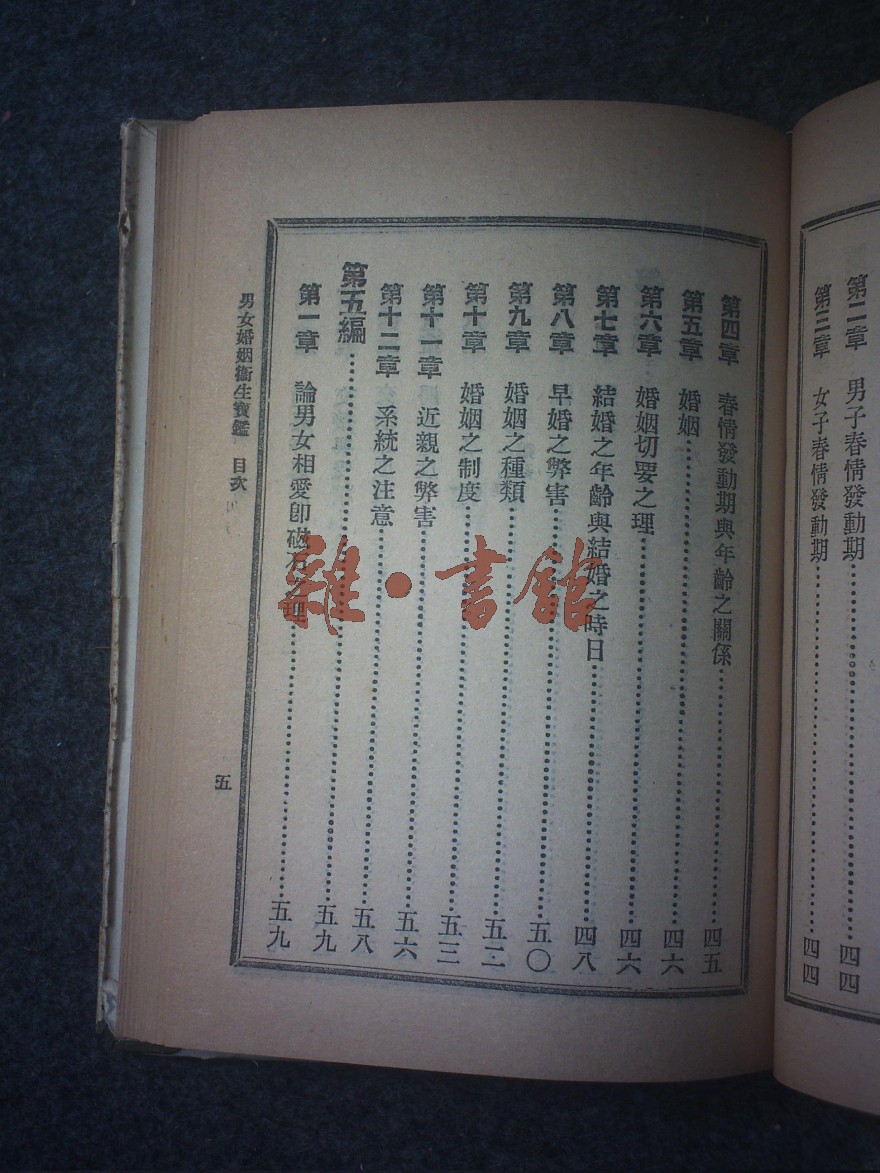 第二章　男子春情發動期………四四
第三章　女子春情發動期………四四
第四章　春情發動期與年齡之關係………四五
第五章　婚姻………四六
第六章　婚姻切要之理………四六
第七章　結婚之年齡與結婚之時日………四八
第八章　早婚之弊害………五〇
第九章　婚姻之種類………五二
第十章　婚姻之制度………五三
第十一章　近親之弊害………五六
第十二章　系統之注意………五八
第五編………五九
第一章　論男女相愛卽磁石之理………五九
男女婚姻衞生寶鑑　目次
五
雜·書館